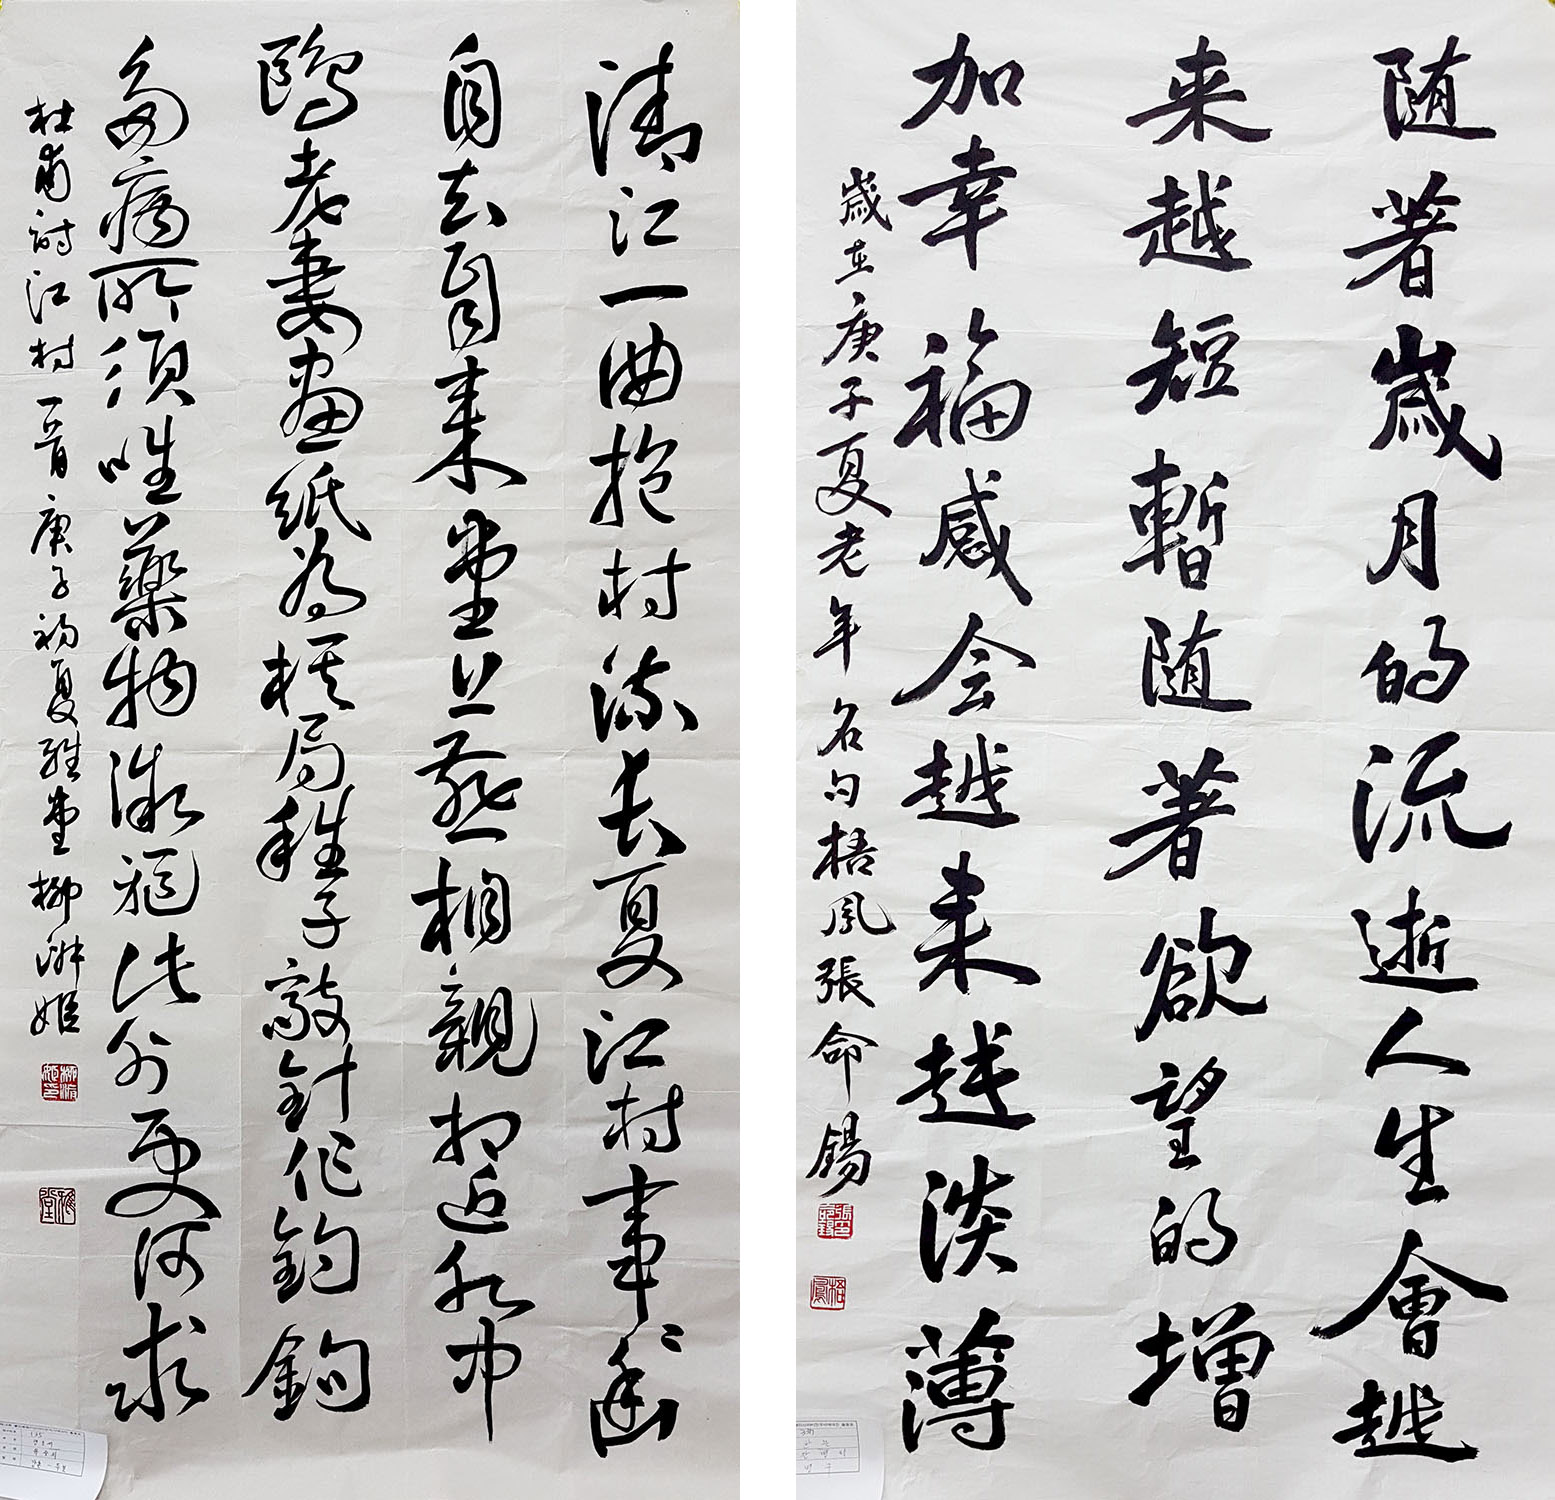 清江一曲抱村流長夏江村事〻幽
自去自来堂上燕相親相近水中
鷗老妻畫紙為棋局稚子敲針作釣鉤
多病所須唯藥物微軀此外更何求
杜甫詩江村一首庚子初夏雅堂柳淋姬
雅堂
随著歲月的流逝人生會越
来越短暫随著欲望的增
加幸福感会越来越淡薄
歲在庚子夏老年名句梧鳳張命錫
梧鳳